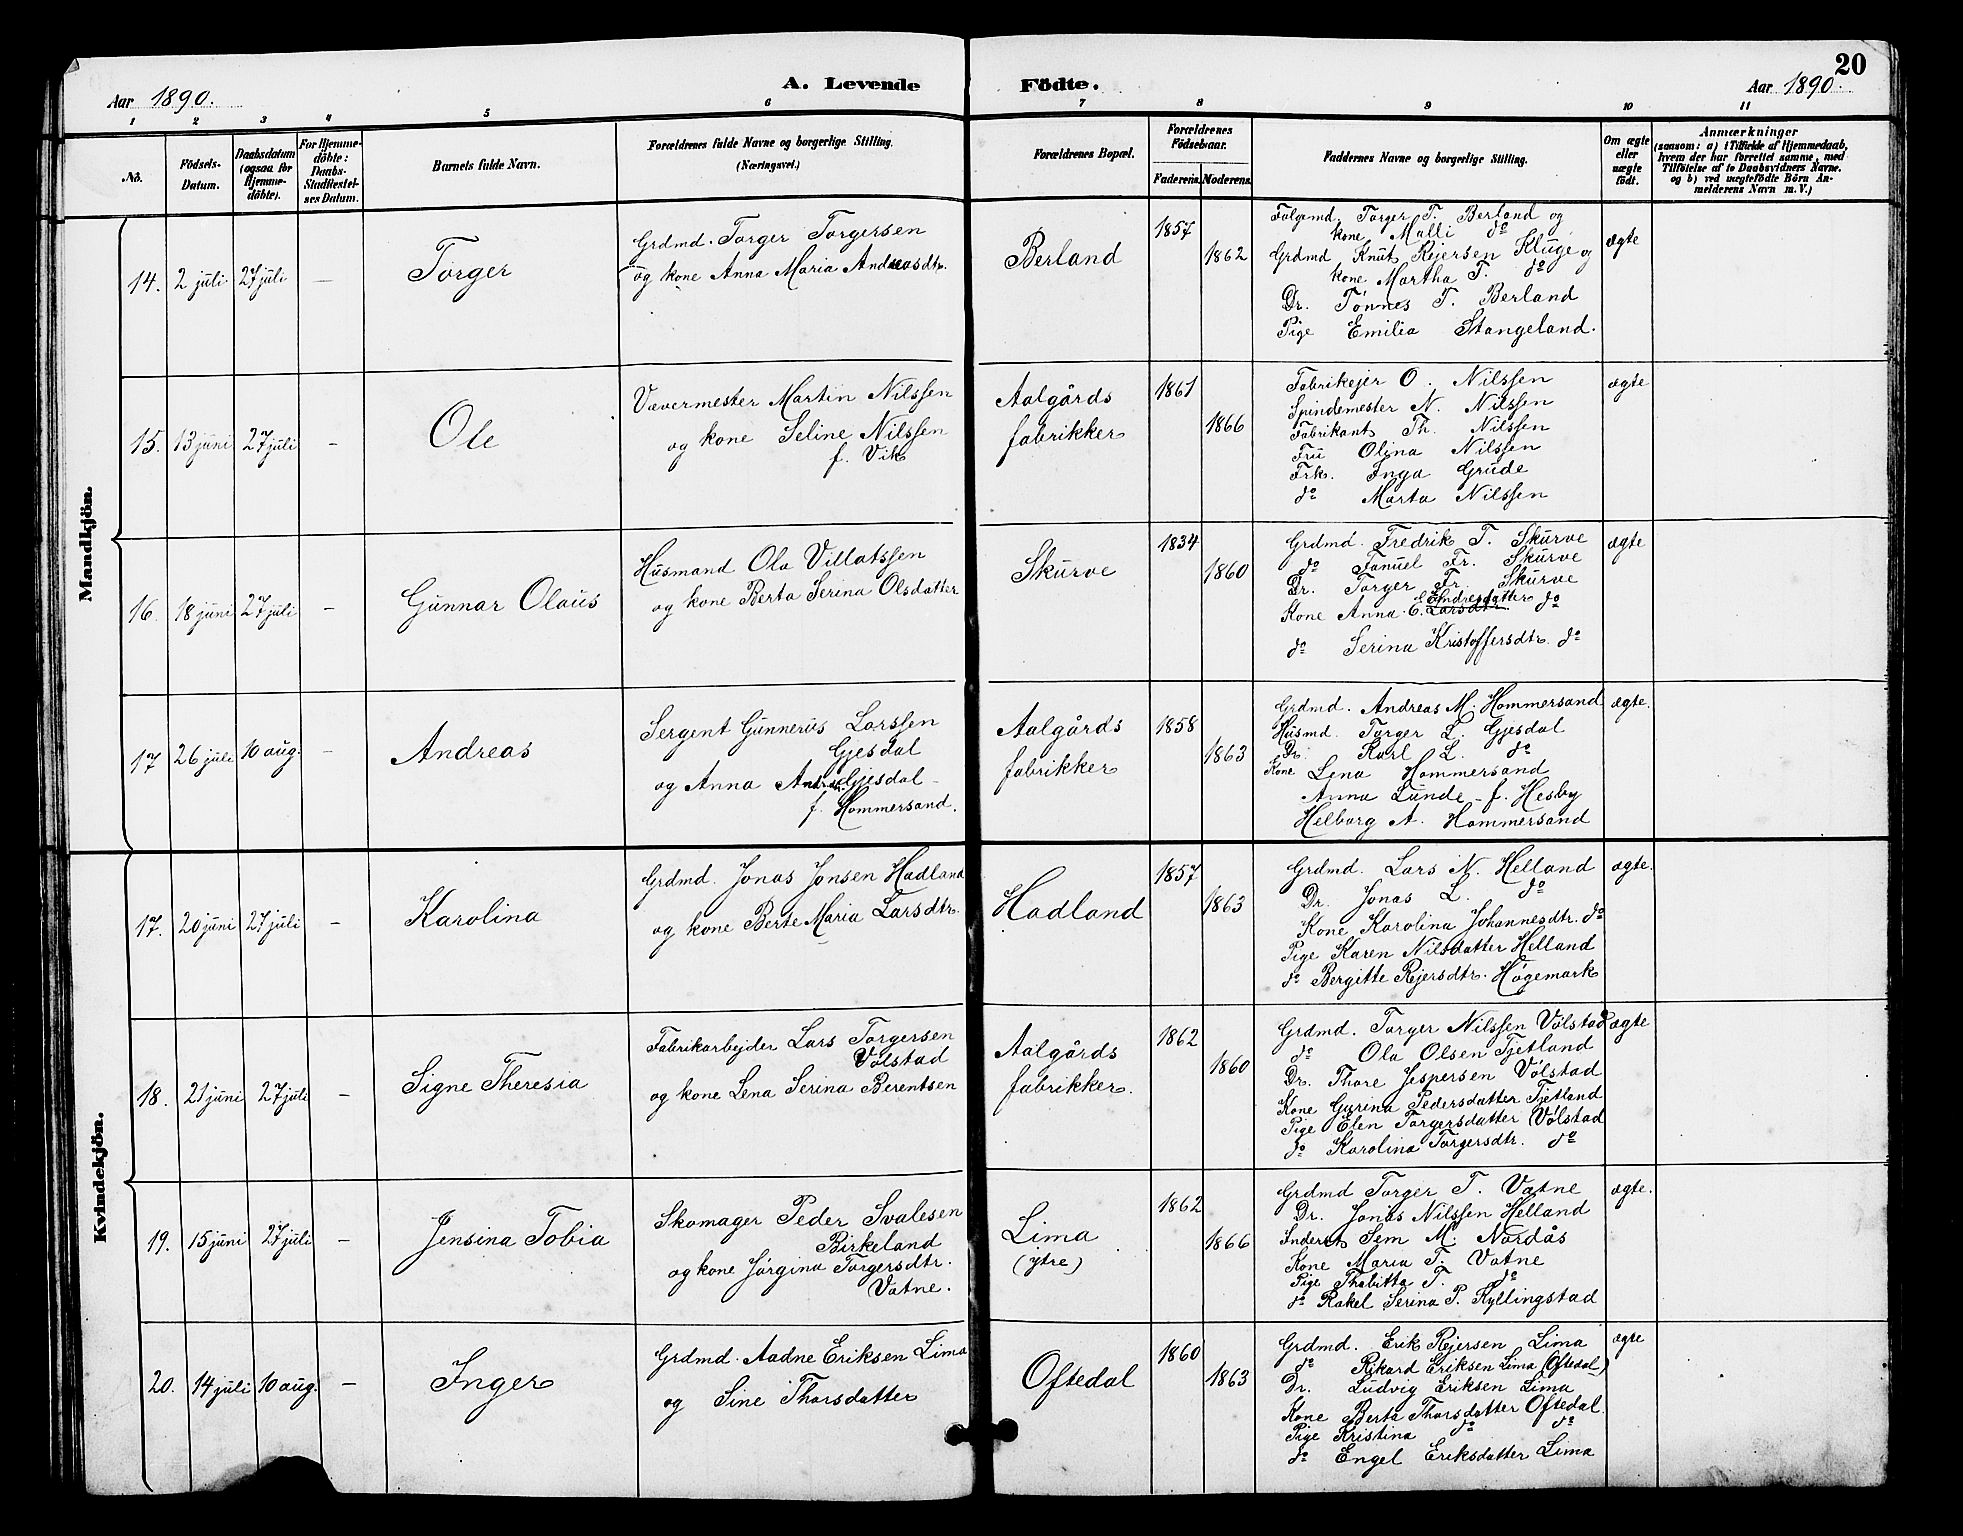 20
Aar 1890.
A. Levende Födte.
Aar 1890.
1 2 3 4 5 6 7 8 9 10 11
No.
Födsels-
Datum.
Daabsdatum
(ogsaa for
Hjemme-
döbte).
For Hjemme-
döbte:
Daabs-
Stadfæstel-
ses Datum.
Barnets fulde Navn.
Forældrenes fulde Navne og borgerlige Stilling.
(Næringsvei.)
Forældrenes Bopæl.
Forældrenes
Födselsaar.
Faderens. Moderens.
Faddernes Navne og borgerlige Stilling.
Om ægte
eller
uægte
födt.
Anmærkninger
(saasom: a) i Tilfælde af Hjemmedaab,
hvem der har forrettet samme, med
Tilföielse af to Daabsvidners Navne.
og b) ved uægtefödte Börn An-
melderens Navn m. V.)
Mandkjön.
14. 2 juli 27 juli – Torger
Grdmd. Torger Torgersen
og kone Anna Maria Andreasdtr.
Berland
1857
1862
Folgemd. Torger T. Berland og
kone Malli do
Grdmd Knut Rejersen Kluge og
kone Martha T. do
Dr. Tönnes T. Berland
Pige Emilia Stangeland.
ægte
15. 13 juni 27 juli – Ole
Vævermester Martin Nilssen
og kone Seline Nilssen
f. Vik
Aalgårds
fabrikker
1861
1866
Fabrikejer O. Nilssen
Spindemester N. Nilssen
Fabrikant Th. Nilssen
Fru Olina Nilssen
Frk. Inga Grude
do Marta Nilssen
ægte
16. 18 juni 27 juli – Gunnar Olaus
Husmand Ola Villatssen
og kone Berta Serina Olsdatter
Skurve
1834
1860
Grdmd. Fredrik T. Skurve
do Fanuel Fr. Skurve
Dr. Torger Fr. Skurve
Endresdatter
Kone Anna C. Larsdtr. do
do Serina Kristoffersdtr. do
ægte
17 26 juli 10 aug. – Andreas
Sergent Gunnerus Larssen
Gjesdal
og Anna Andrea Gjesdal –
f. Hommersand.
Aalgårds
fabrikker
1858
1863
Grdmd. Andreas M. Hommersand
Husmd. Torger L. Gjesdal
Dr. Karl L. do
Kone Lena Hommersand
Anna Lunde – f. Hesby
Helborg A. Hommersand
ægte.
Kvindekjön.
17. 20 juni 27 juli – Karolina
Grdmd. Jonas Jonsen Hadland
og kone Berte Maria Larsdtr.
Hadland
1857
1863
Grdmd. Lars N. Helland
Dr. Jonas L. do
Kone Karolina Johannesdtr. do
Pige Karen Nilsdatter Helland
do Bergitte Rejersdtr. Högemark
ægte.
18. 21 juni 27 juli – Signe Theresia
Fabrikarbejder Lars Torgersen
Völstad
og kone Lena Serina Berentsen
Aalgårds
fabrikker.
1862
1860
Grdmd. Torger Nilssen Völstad
do Ola Olsen Tjetland
Dr. Thore Jespersen Völstad
Kone Gurina Pedersdatter Tjetland
Pige Elen Torgersdatter Völstad
do Karolina Torgersdtr. do
ægte
19. 15 juni 27 juli – Jensina Tobia
Skomager Peder Svalesen
Birkeland
og kone Jörgina Torgersdtr.
Vatne.
Lima
(ytre)
1862
1866
Grdmd Torger T. Vatne
Dr. Jonas Nilssen Helland
Inderst Sem M. Nordås
Kone Maria T. Vatne
Pige Thabitta T. do
do Rakel Serina P. Kyllingstad
ægte.
20. 14 juli 10 aug. – Inger
Grdmd. Aadne Eriksen Lima
og Sine Thorsdatter
Oftedal
1860
1863
Grdmd. Erik Rejersen Lima
do Rikard Eriksen Lima (Oftedal)
Dr. Ludvig Eriksen Lima
Kone Berta Thorsdatter Oftedal.
Pige Kristina do do
do Engel Eriksdatter Lima
ægte